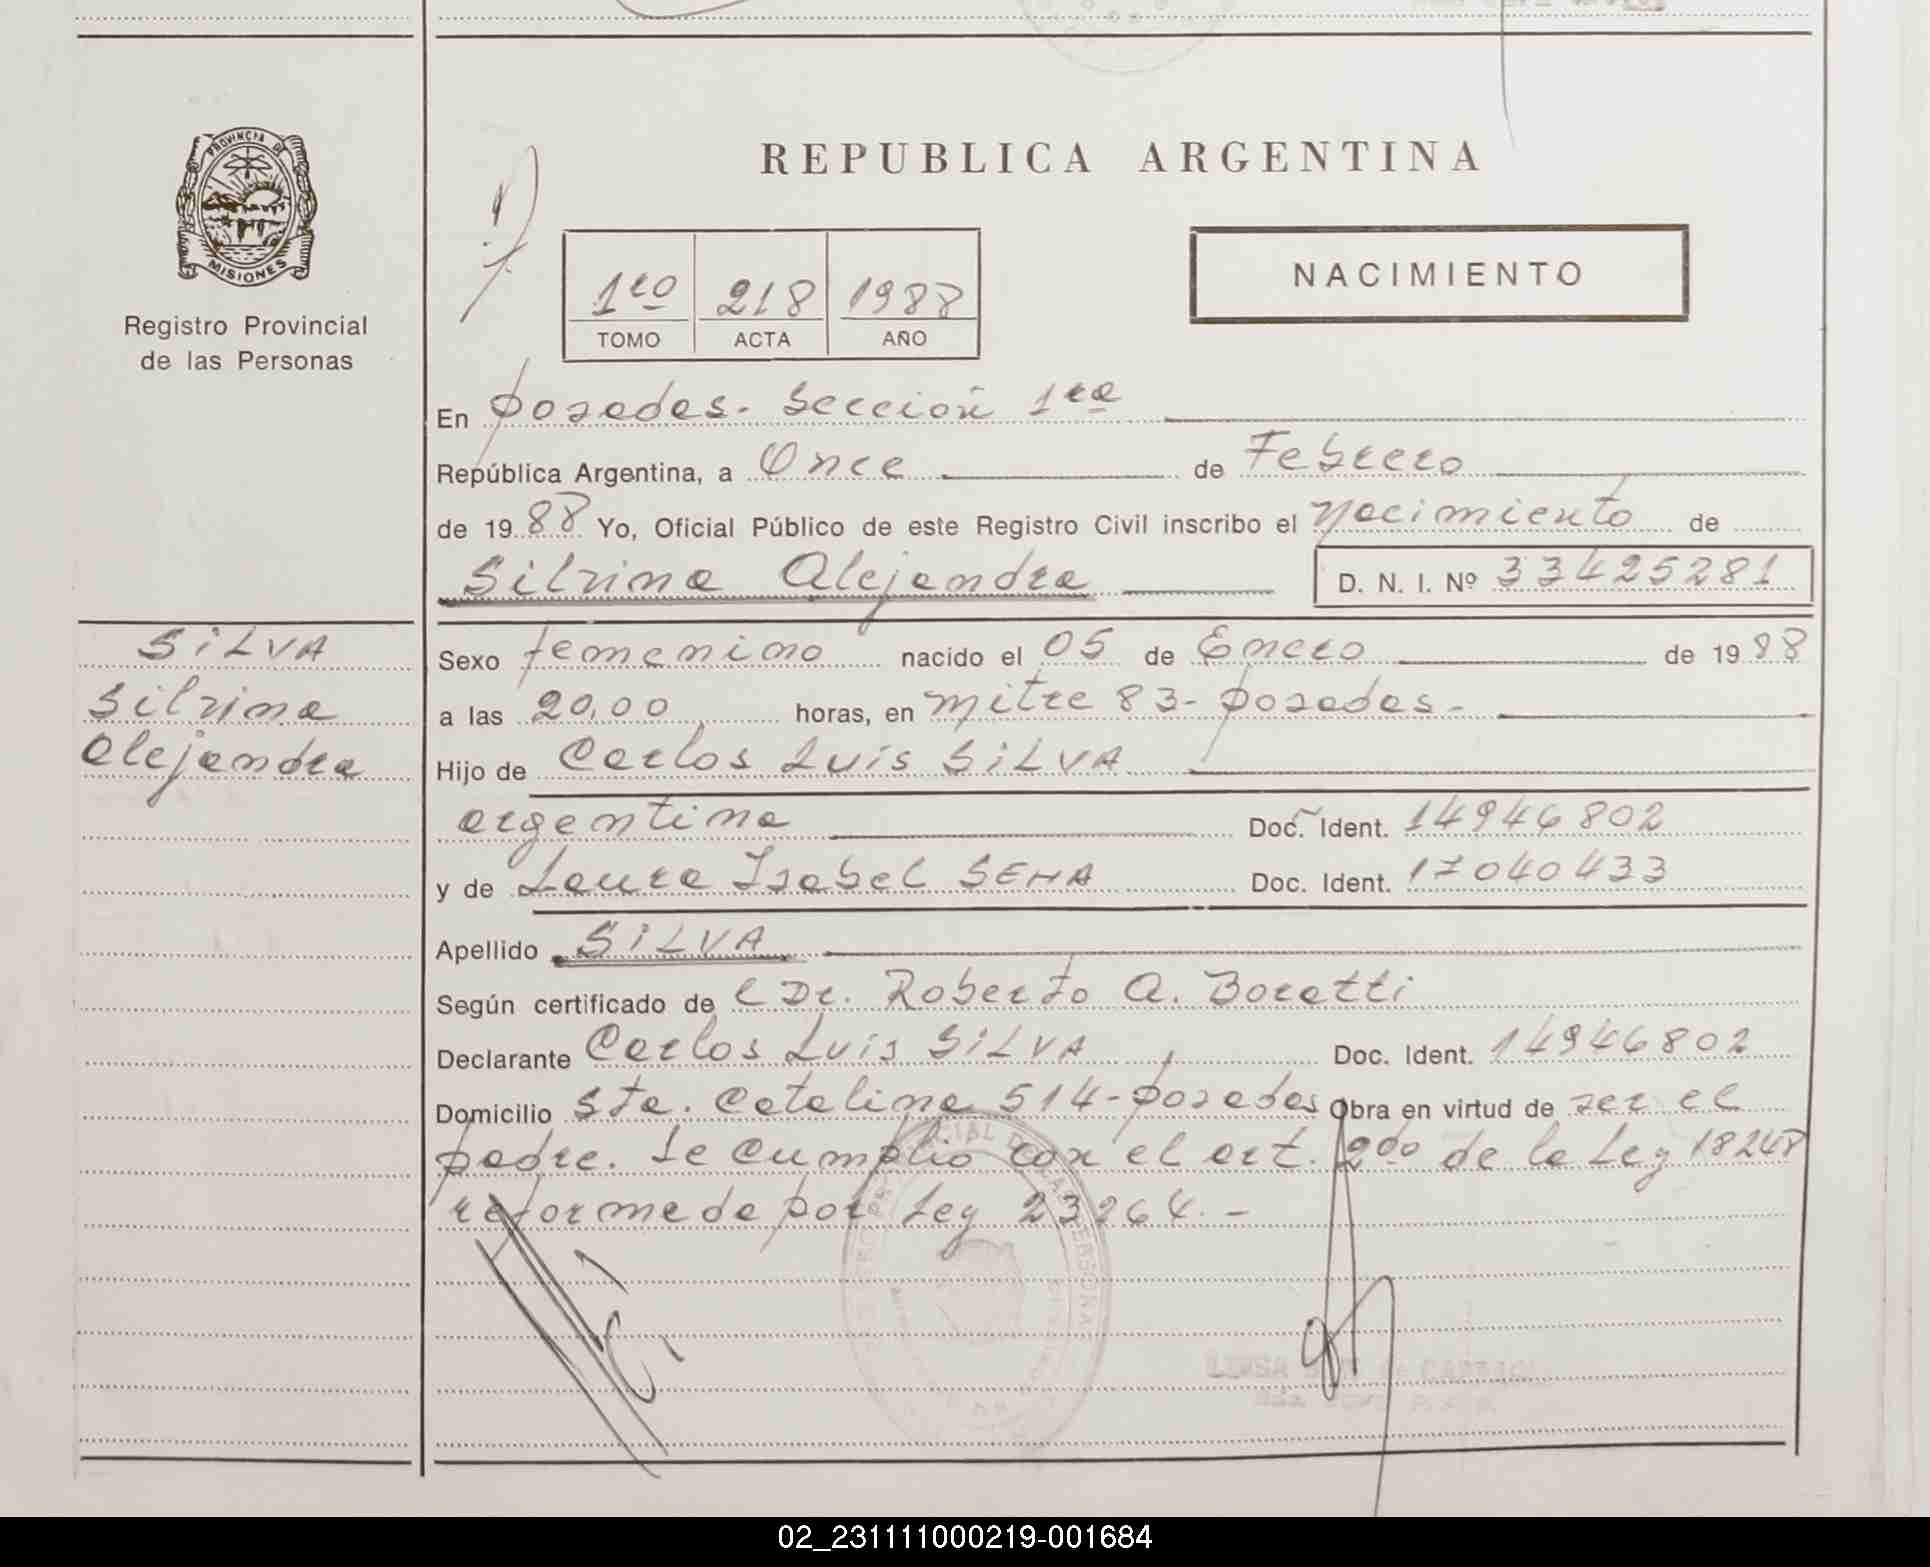 PROVINCIA DE
MISIONES
Registro Provincial
de las Personas
REPUBLICA ARGENTINA
NACIMIENTO
1ro 218 1988
TOMO ACTA AÑO
En Posadas. Sección 1ra
República Argentina, a Once de Febrero
de 1988 Yo, Oficial Público de este Registro Civil inscribo el Nacimiento de
Silvina Alejandra D. N. I. Nº 33425281
SILVA
Silvina
Alejandra
Sexo femenino nacido el 05 de Enero de 1988
a las 20,00 horas, en Mitre 83- Posadas-
Hijo de Carlos Luis SILVA
argentina Doc. Ident. 14946802
y de Laura Isabel SENA Doc. Ident. 17040433
Apellido SILVA
Según certificado de l Dr. Roberto A.
Declarante Carlos Luis SILVA Doc. Ident. 14946802
Domicilio Sta. Catalina 514-Posadas Obra en virtud de ser el
padre. Se cumplió con el art. 2do de la Ley 18248
reformada por Ley 23264.-
02_231111000219-001684